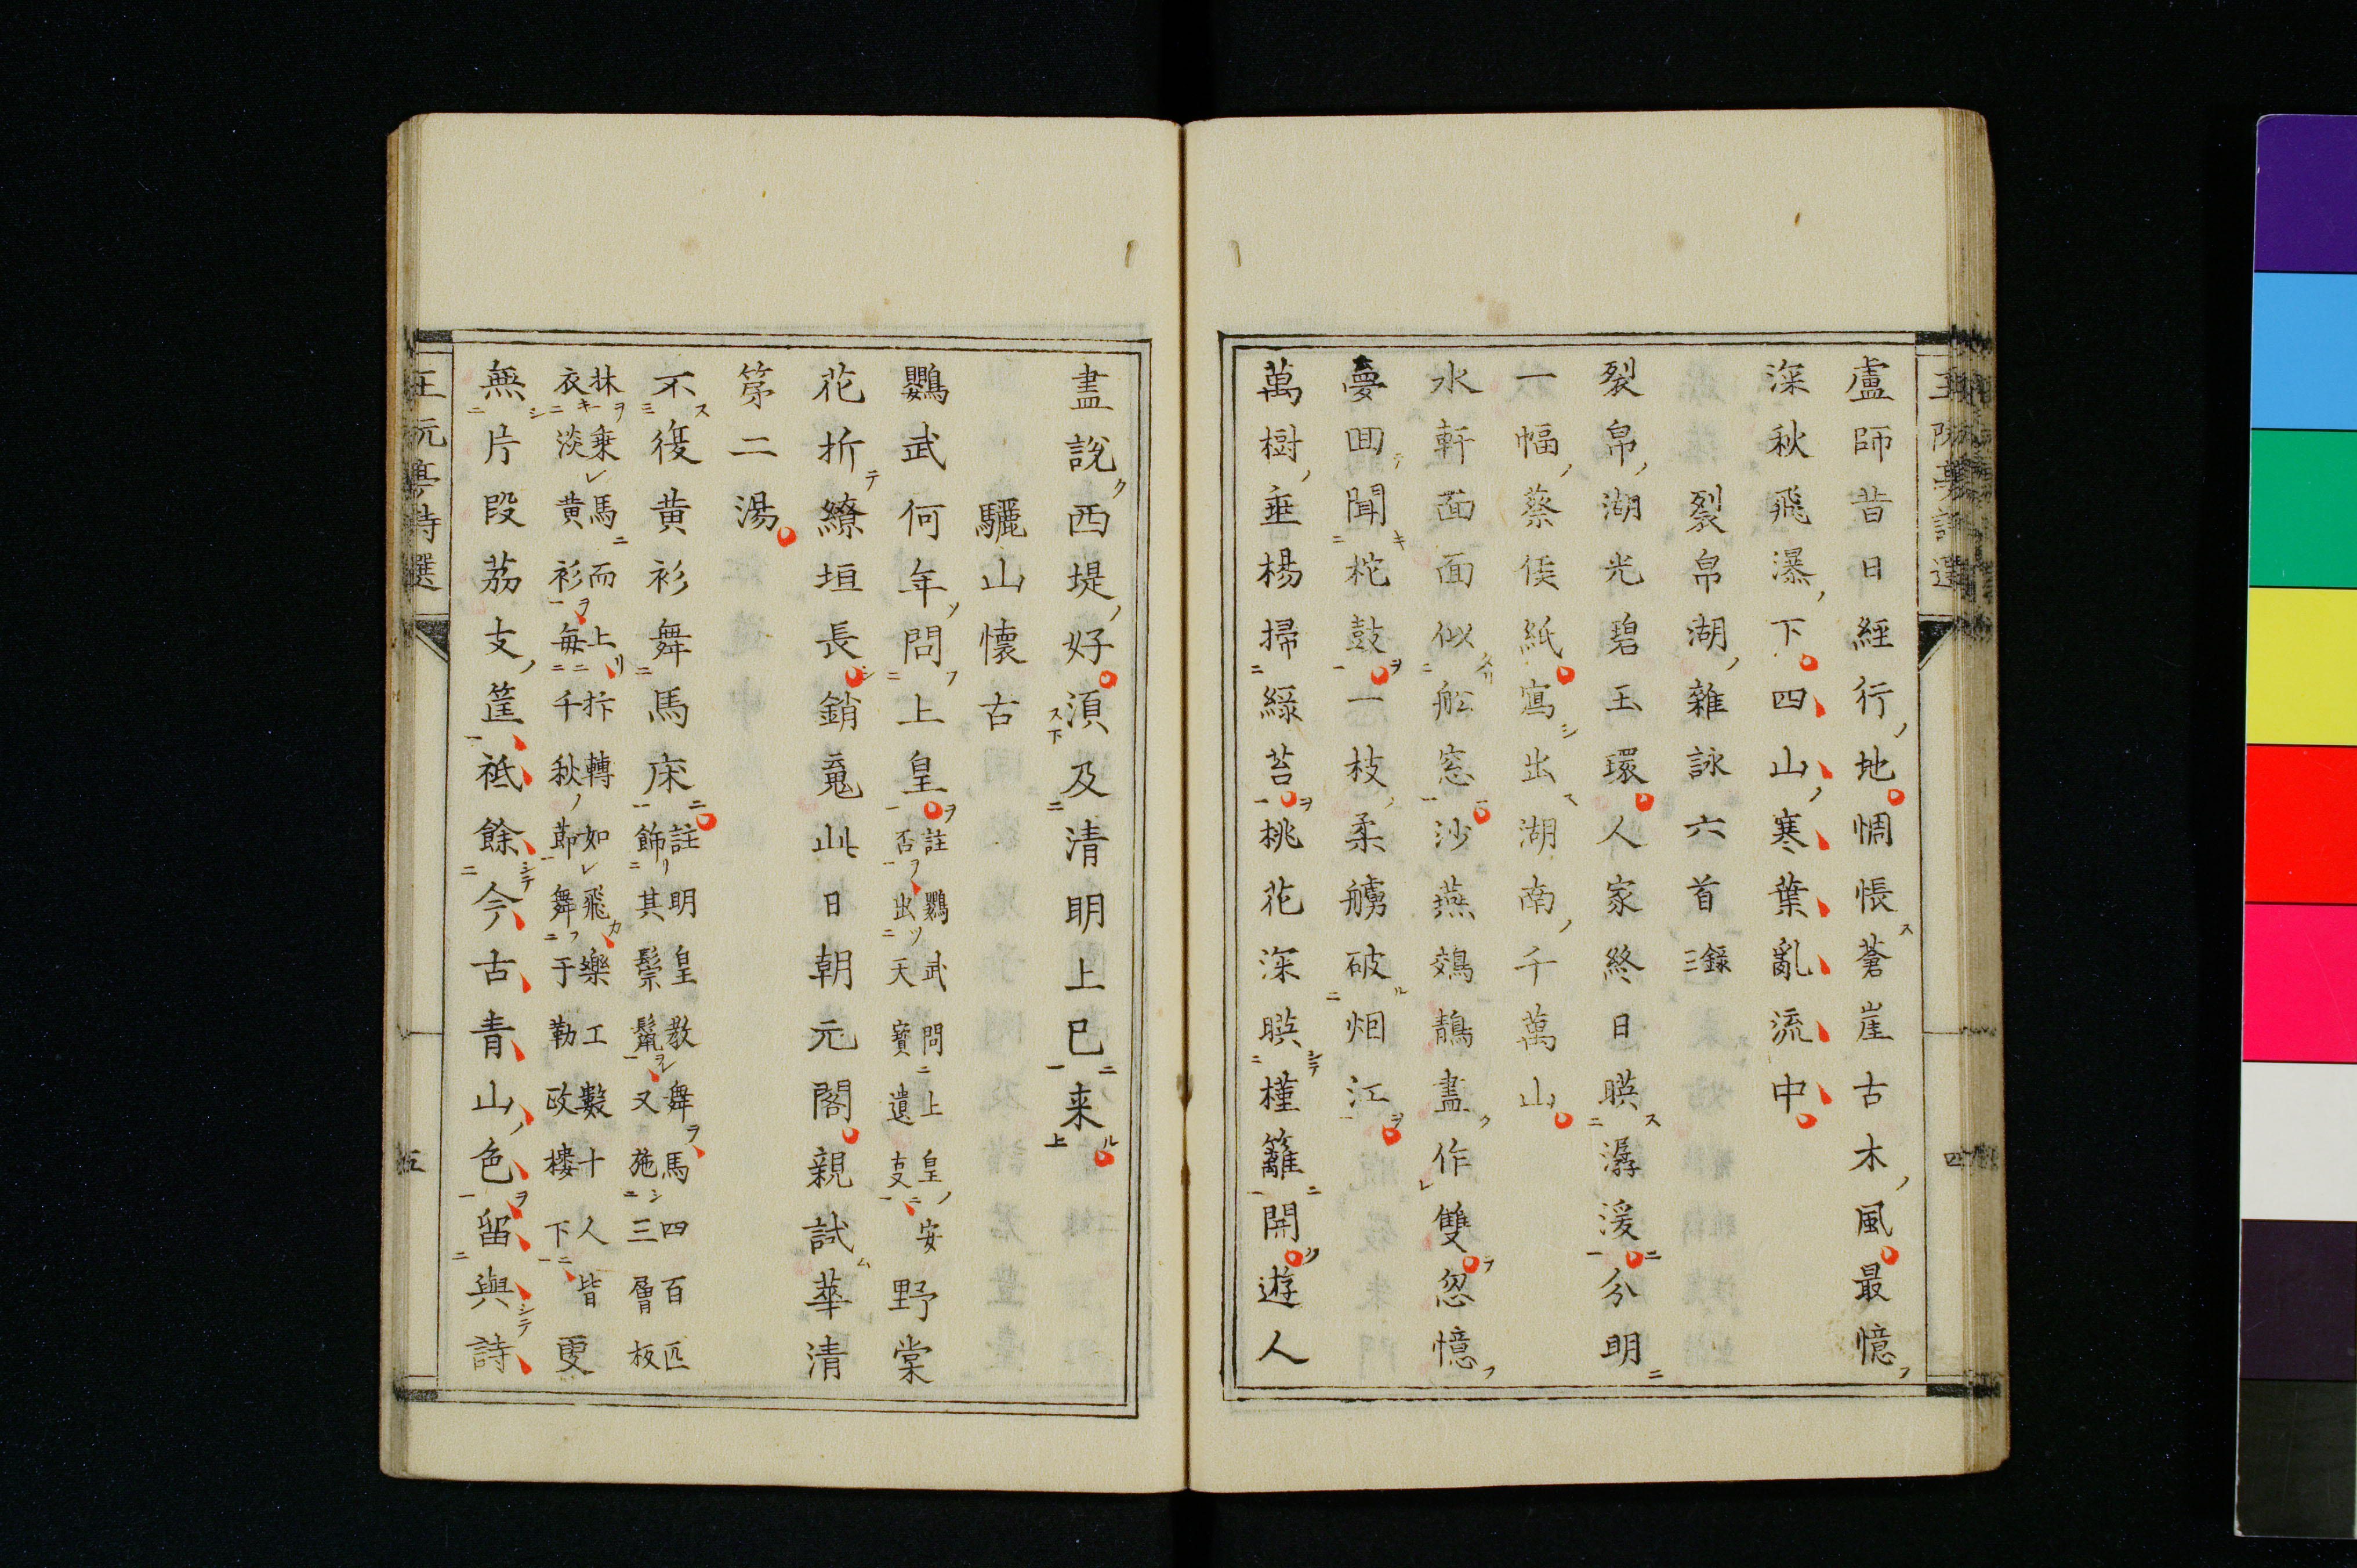 盧師昔日經行地惆悵蒼崖古木風最憶
深秋飛瀑下四山寒葉亂流中
裂帛湖雜詠六首 錄三
裂帛湖光碧玉環人家終日暎潺湲分明
一幅蔡侯紙寫出湖南千萬山
水軒面面似舩窓沙燕鵁鶄盡作雙忽憶
夢回聞柁鼓一枝柔艣破烟江
萬樹垂楊掃綠苔桃花深暎槿籬開遊人
四
盡說西堤好須及清明上巳来
驪山懷古
鸚武何年問上皇 註鸚武問上皇安否出天寶遺事 野棠
花折繚垣長銷䰟此日朝元閣親試華清
第二湯
不復黄衫舞馬床 註明皇教舞馬四百匹飾其鬃鬣又施三層板
抹乗馬而上抃轉如飛樂工數十人皆衣淡黄衫每千秋節舞于勤政樓下 更
無片段荔支筐祗餘今古青山色留與詩
王阮亭詩選
五